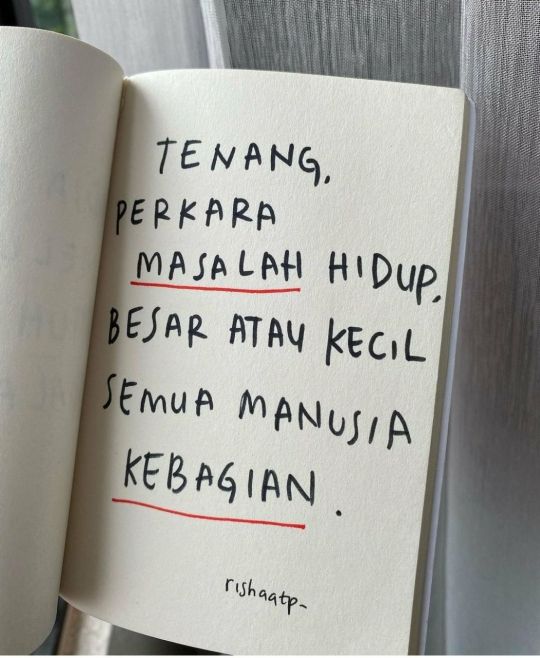 TENANG,
PERKARA
MASALAH HIDUP,
BESAR ATAU KECIL
SEMUA MANUSIA
KEBAGIAN.
rishaatp_